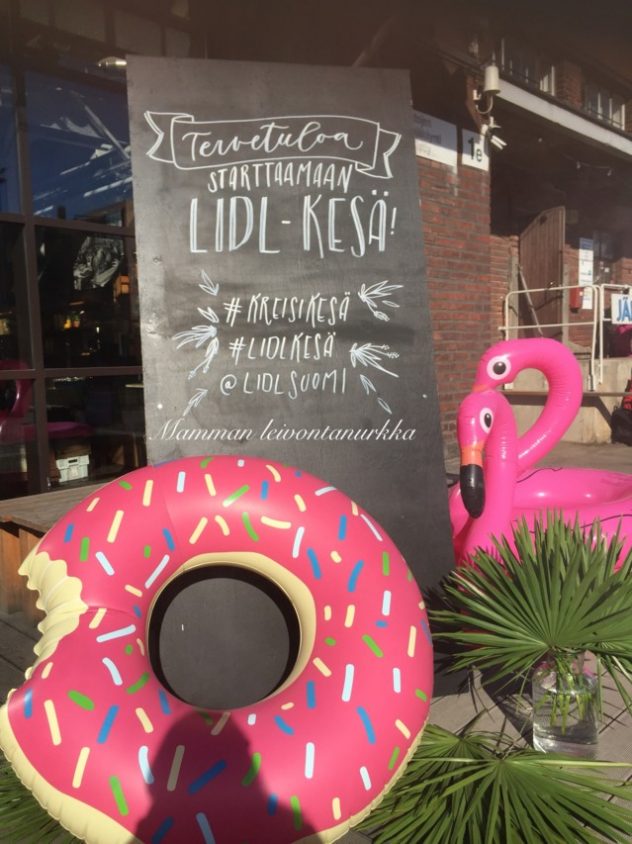 Tervetuloa
STARTTAAMAAN
LIDL-KESÄ!
#KREISIKESÄ
#LIDLKESÄ
@LIDLSUOMI
Mamman leivontanurkka
1e
JÄ